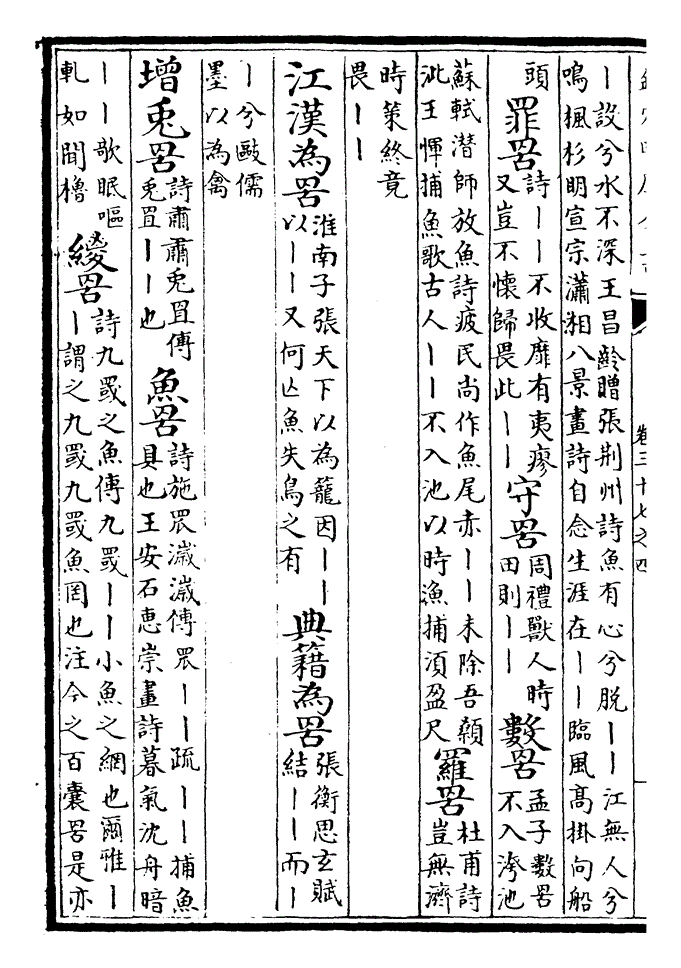 卷三十七之四
丨設兮水不深王昌齡贈張荆州詩魚有心兮脫丨丨江無人兮
鳴楓杉明宣宗瀟湘八景畫詩自念生涯在丨丨臨風髙掛向船
頭
罪罟
詩丨丨不收靡有夷瘳
又豈不懷歸畏此丨丨
守罟
周禮獸人時
田則丨丨
數罟
孟子數罟
不入洿池
蘇軾潜師放魚詩疲民尚作魚尾赤丨丨未除吾顙
泚王惲捕魚歌古人丨丨不入池以時漁捕湏盈尺
羅罟
杜甫詩
豈無濟
時策終竟
畏丨丨
江漢為罟
淮南子張天下以為籠因丨丨
以丨丨又何亾魚失鳥之有
典籍為罟
張衡思玄賦
結丨丨而丨
丨兮敺儒
墨以為禽
增兎罟
詩肅肅兎罝傳
兎罝丨丨也
魚罟
詩施罛濊濊傳罛丨丨疏丨丨捕魚
具也王安石惠崇畫詩暮氣沈舟暗
丨丨歌眠嘔
軋如聞櫓
緵罟
詩九罭之魚傳九罭丨丨小魚之網也爾雅丨
丨謂之九罭九罭魚罔也注今之百囊罟是亦